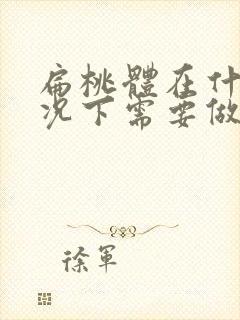 扁桃體在什
况下需要做
徐軍